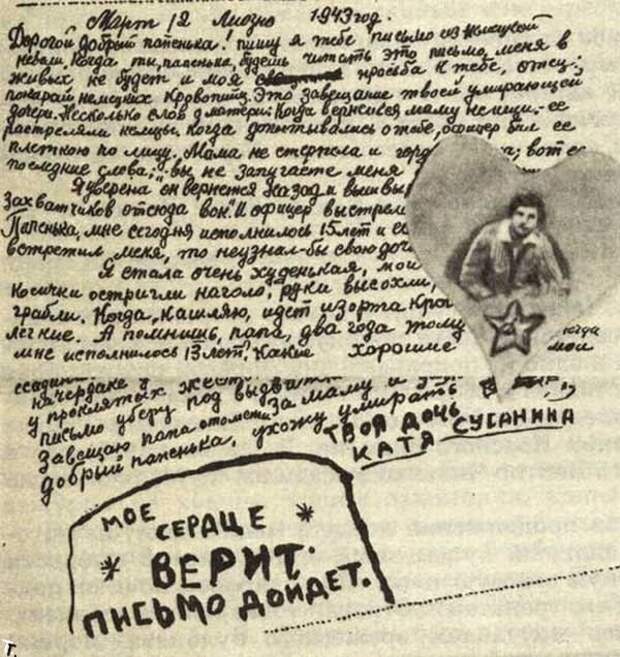 Март 12 Лиозно 1943 год.
Дорогой добрый папенька! пишу я тебе письмо из немецкой
неволи. Когда ты, папенька, будешь читать это письмо, меня в
живых не будет и моя просьба к тебе, отец:
покарай немецких кровопийц. Это завещание твоей умирающей
дочери. Несколько слов о матери. Когда вернешься маму не ищи. - ее
расстреляли немцы. Когда допытывались о тебе, офицер бил ее
плеткою по лицу. Мама не стерпела и гор вот ее
последние слова: „вы не запугаете меня
Я уверена он вернется назад и вышвы
захватчиков отсюда вон". И офицер выстрел
Папенька, мне сегодня исполнилось 15 лет и ес
встретил меня, то неузнал-бы свою доч
Я стала очень худенькая, мои
косички остригли наголо, руки высохли,
грабли. Когда, кашляю, идет изо рта кро
легкие. А помнишь, папа, два года тому когда
мне исполнилось 13 лет, Какие хорошие мои
на чердаке у
у проклятых жест
письмо уберу под
Завещаю папа отомсти за маму и
добрый папенька, ухожу умирать
ТВОЯ ДОЧЬ
КАТЯ СУСАНИНА
МОЕ
СЕРДЦЕ
ВЕРИТ.
ПИСЬМО ДОЙДЕТ.
г.